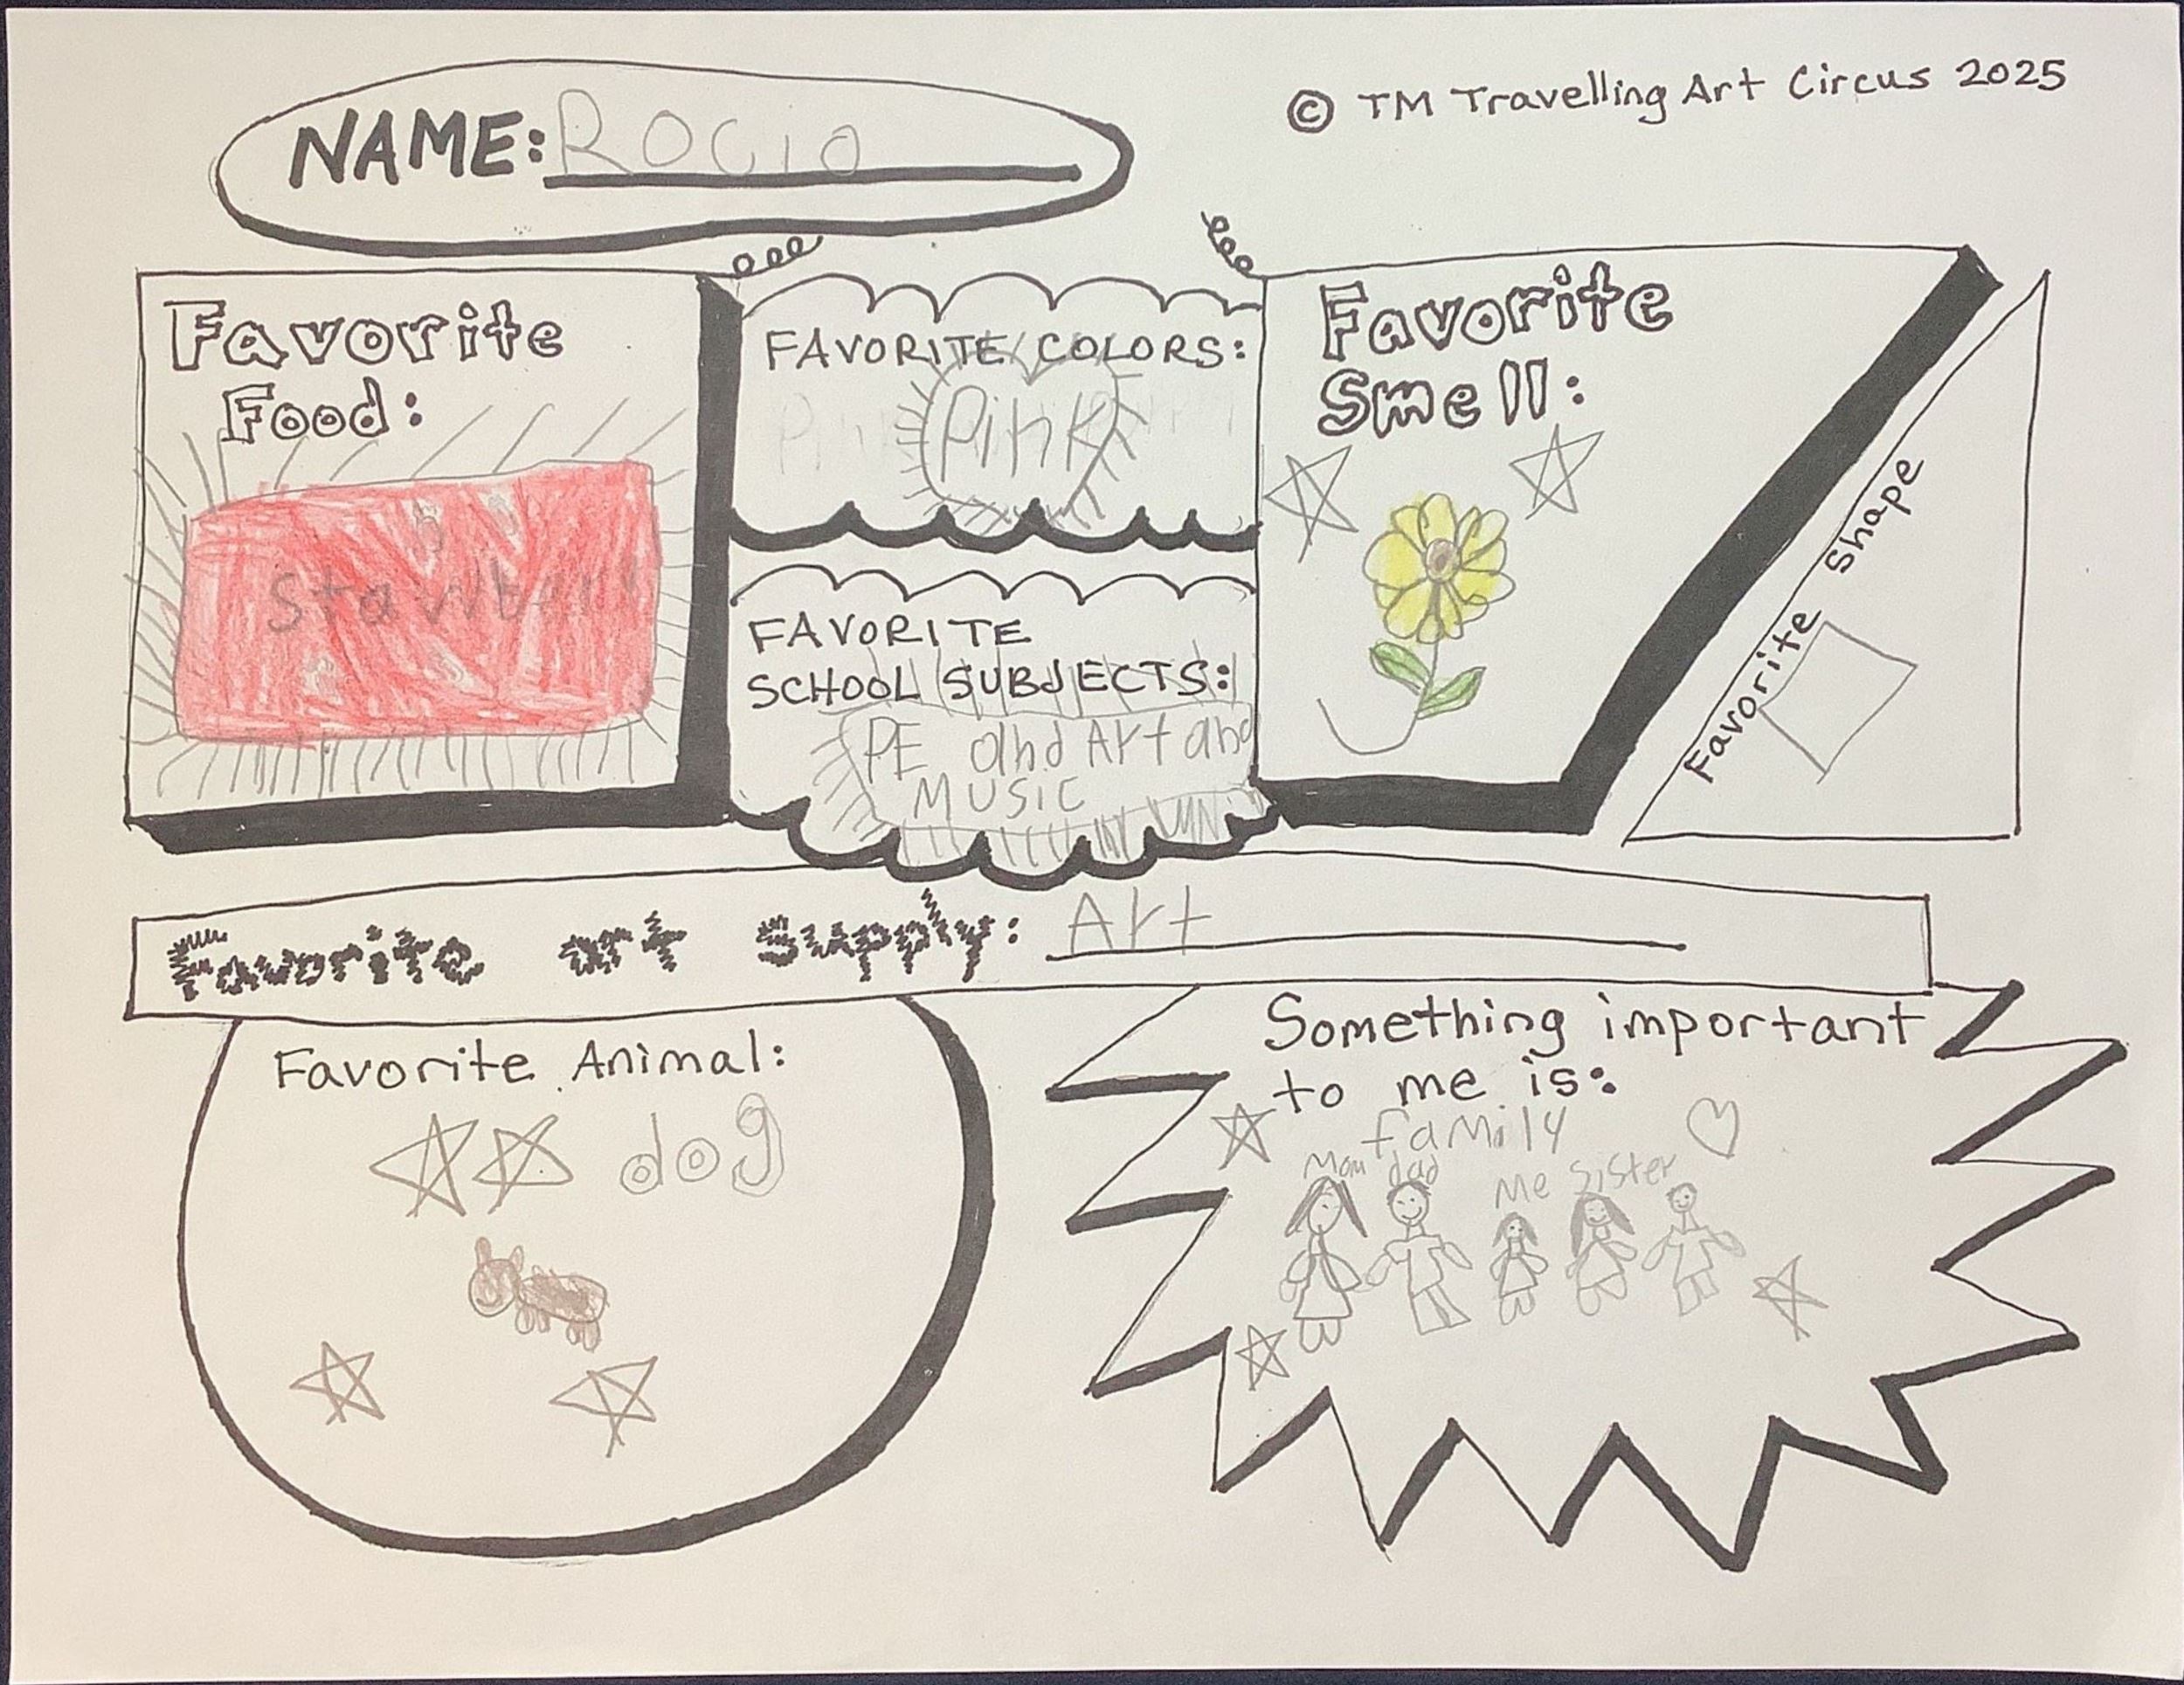 © TM Travelling Art Circus 2025
NAME: Rocio
Favorite
Food:
FAVORITE COLORS:
Pink
FAVORITE
SCHOOL SUBJECTS:
PE and Art and
MUSIC
Favorite
Smell:
Favorite Shape
Favorite art supply: Art
Favorite Animal:
dog
Something important
to me is:
family
Mom dad Me Sister